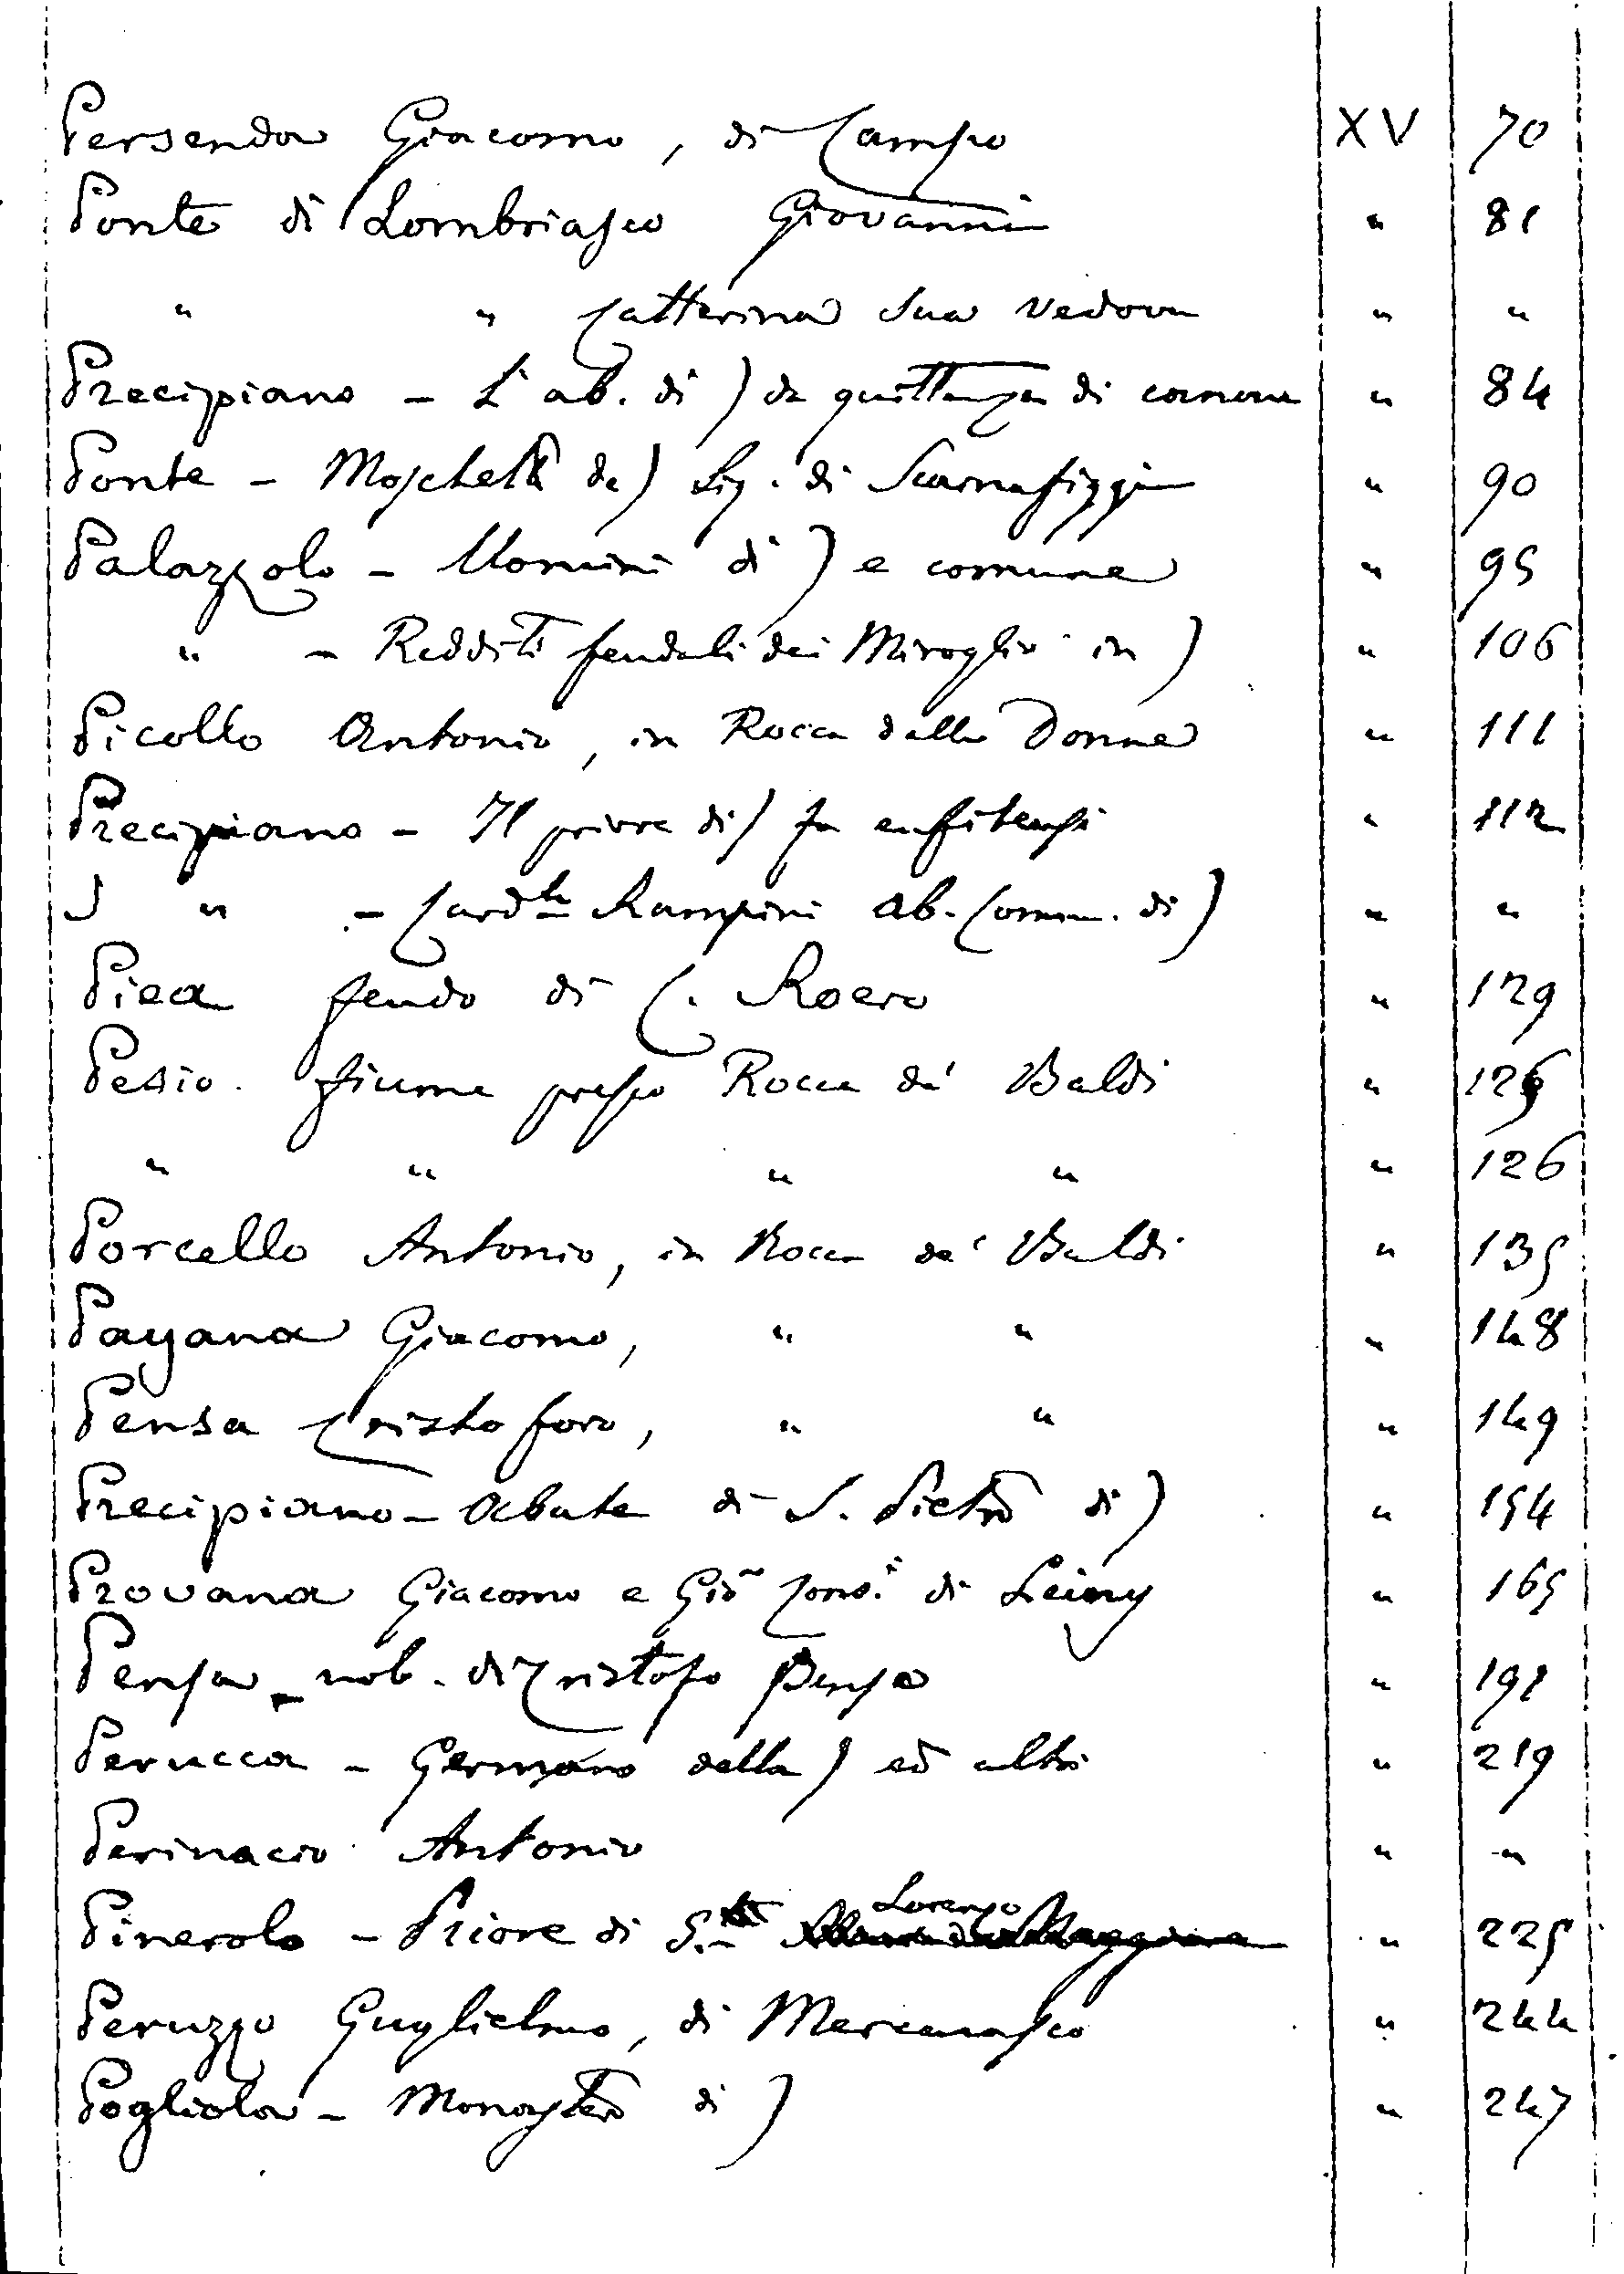 Persenda Giacomo, di Campo XV 70
Ponte di Lombriasco Giovanni " 81
" " Catterina sua vedova " "
Precipiano - L'ab. di) da quittanza di canone " 84
Ponte - Moschetti de) Sig. di Scarnafiggi " 90
Palazzolo - Uomini di) e comune " 95
" - Redditi feudali dei Miroglio in) " 106
Picollo Antonio, in Rocca delle Donne " 111
Precipiano - Il priore di) fa enfiteusi " 112
" - Card.le Rampini ab. Comm. di) " "
Piea feudo di C. Roero " 129
Pesio. fiume presso Rocca de' Baldi " 125
" " " " " 126
Porcello Antonio, in Rocca de' Baldi " 135
Payana Giacomo, " " " 148
Pensa Cristoforo, " " " 149
Precipiano - Abate di S. Pietro di) " 154
Provana Giacomo e Gio Cons.i di Leiny " 165
Pensa - nob. di Cristofo Pensa " 191
Perucca - Germano della) ed altri " 219
Perinacio Antonio " "
Pinerolo - Priore di S. Lorenzo " 225
Peruzzo Guglielmo, di Mercenasco " 244
Pogliola - Monastero di) " 247